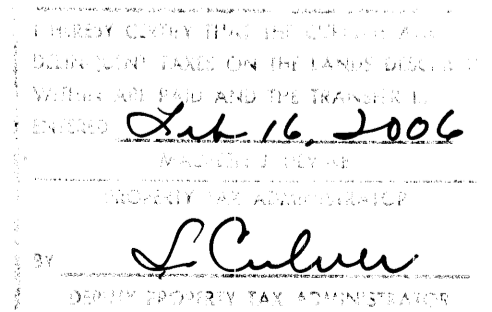 I HEREBY CERTIFY THAT THE CURRENT AND
DELINQUENT TAXES ON THE LANDS DESCRIBED
WITHIN ARE PAID AND THE TRANSFER IS
ENTERED Feb 16, 2006
J.
PROPERTY TAX ADMINISTRATOR
BY L Culver
DEPUTY PROPERTY TAX ADMINISTRATOR